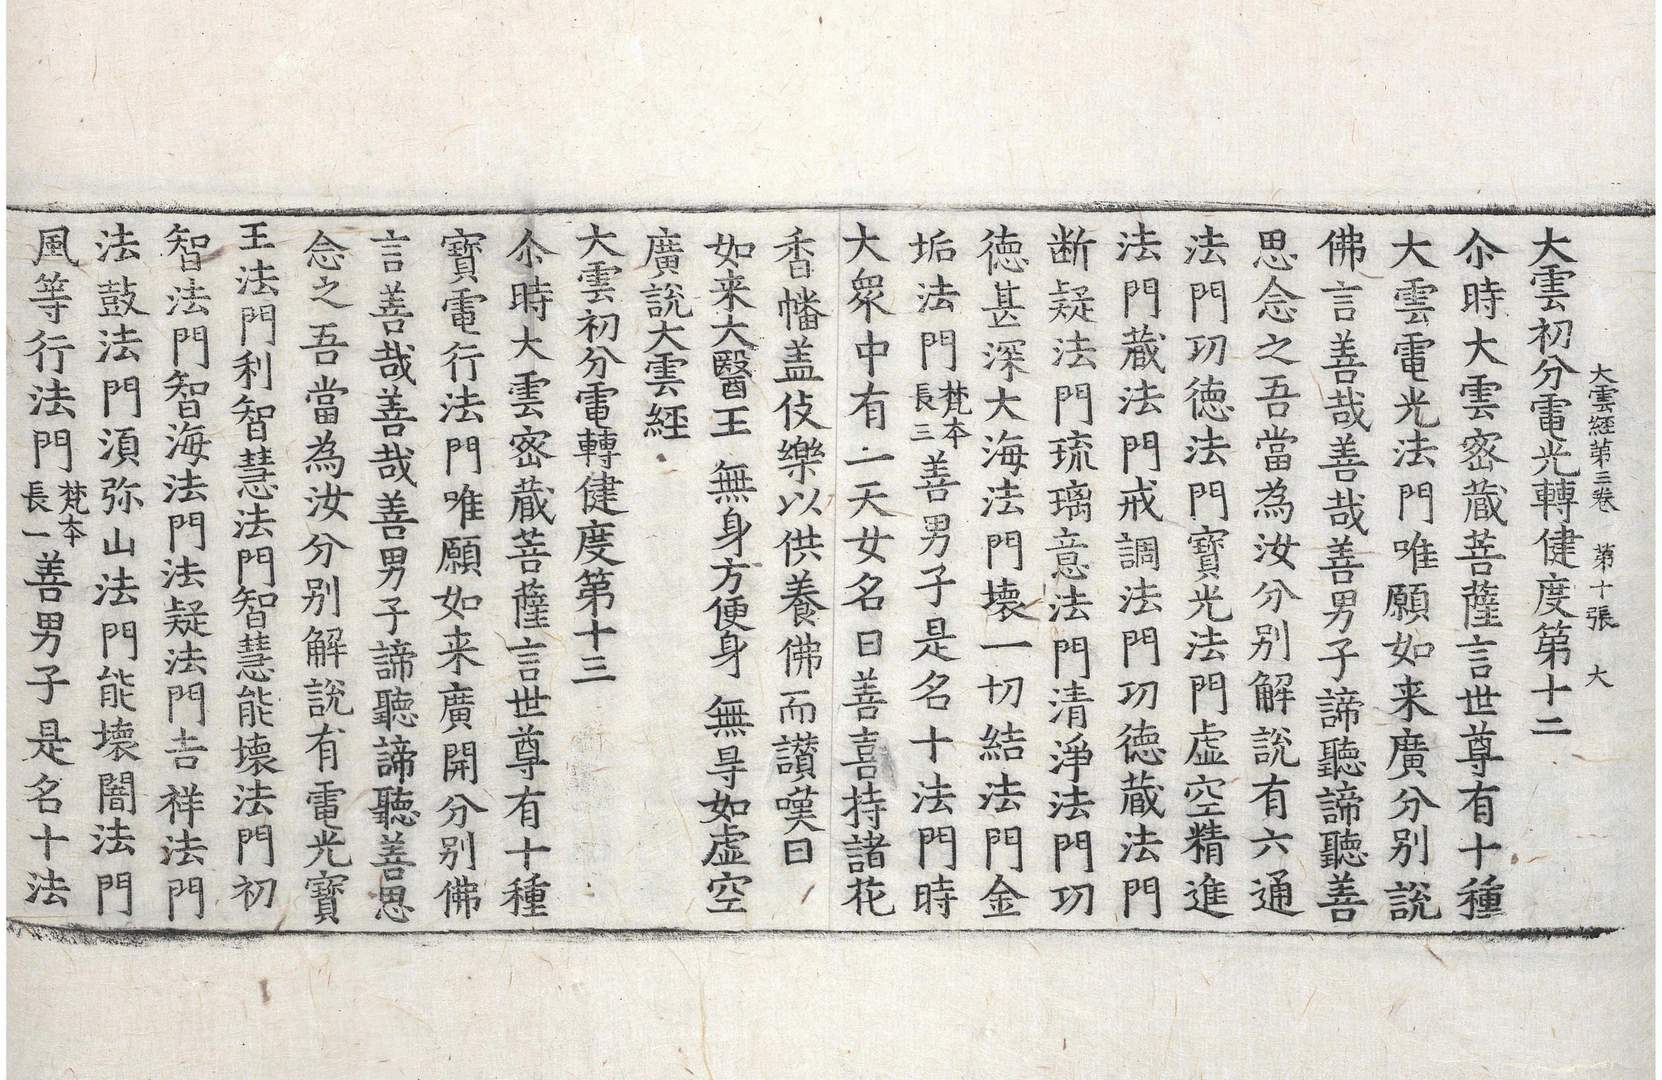 大雲経第三卷　第十張　大
大雲初分電光轉健度第十二
尒時大雲密蔵菩薩言世尊有十種
大雲電光法門唯願如来廣分別說
佛言善哉善哉善男子諦聽諦聽善
思念之吾當為汝分別解說有六通
法門功徳法門寶光法門虛空精進
法門蔵法門戒調法門功徳蔵法門
断疑法門琉璃意法門清淨法門功
徳甚深大海法門壞一切結法門金
垢法門梵本長三善男子是名十法門時
大眾中有一天女名曰善喜持諸花
香幡盖伎樂以供養佛而讃嘆曰
如来大醫王　無身方便身　無㝵如虛空
廣說大雲經
大雲初分電轉健度第十三
尒時大雲密蔵菩薩言世尊有十種
寶電行法門唯願如来廣開分別佛
言善哉善哉善男子諦聽諦聽善思
念之吾當為汝分別解說有電光寶
王法門利智慧法門智慧能壞法門初
智法門智海法門法疑法門吉祥法門
法鼓法門須弥山法門能壞闇法門
風等行法門梵本長一善男子是名十法